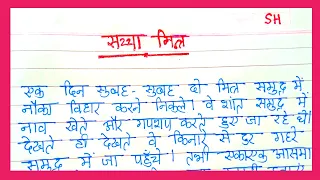 SH
सच्चा मित्र
एक दिन सुबह-सुबह दो मित्र समुद्र में
नौका विहार करने निकले। वे शांत समुद्र में
नाव खेते और गपशप करते हुए जा रहे थे।
देखते ही देखते वे किनारे से दूर गहरे
समुद्र में जा पहुँचे। तभी एकाएक आसमा